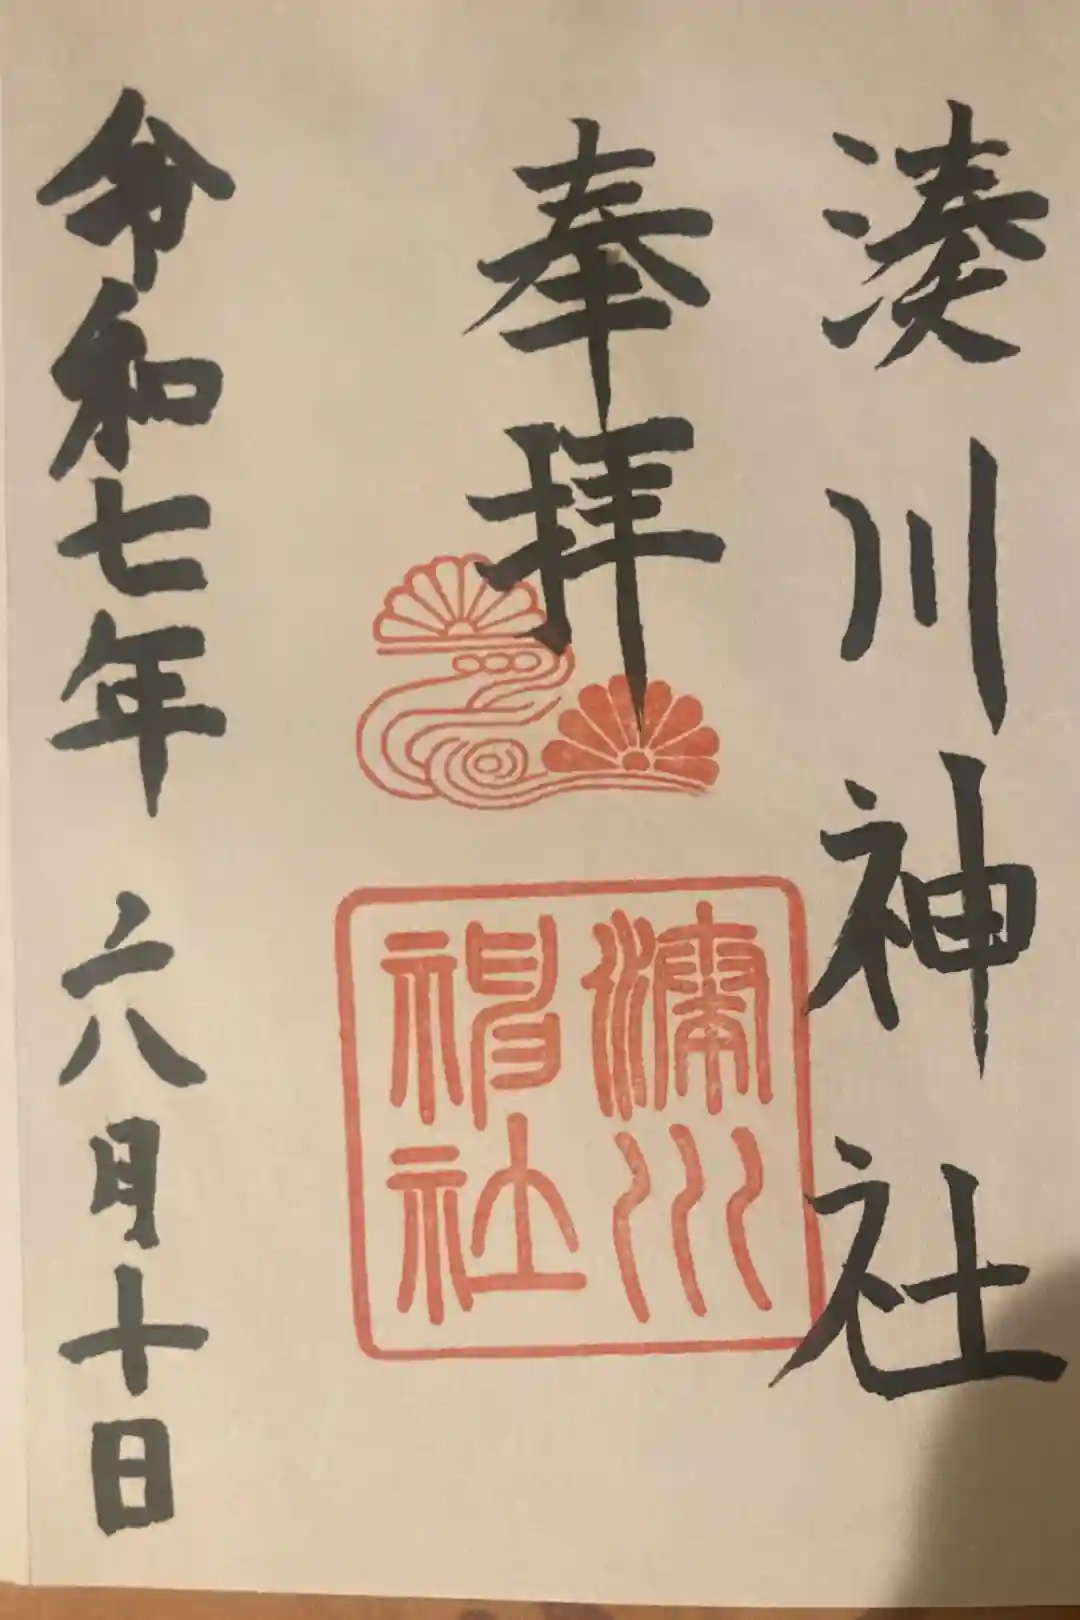 湊川神社
奉拝
湊川
神社
令和七年六月十日